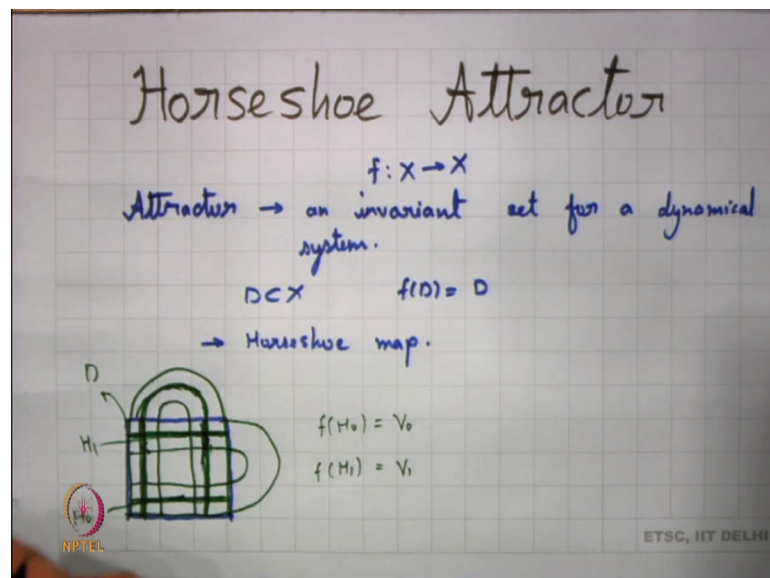 Horseshoe Attractor
f: X → X
Attractor → an invariant set for a dynamical
system.
D ⊂ X f(D) = D
→ Horseshoe map.
D
H₁
f(H₀) = V₀
f(H₁) = V₁
H₀
NPTEL
ETSC, IIT DELHI